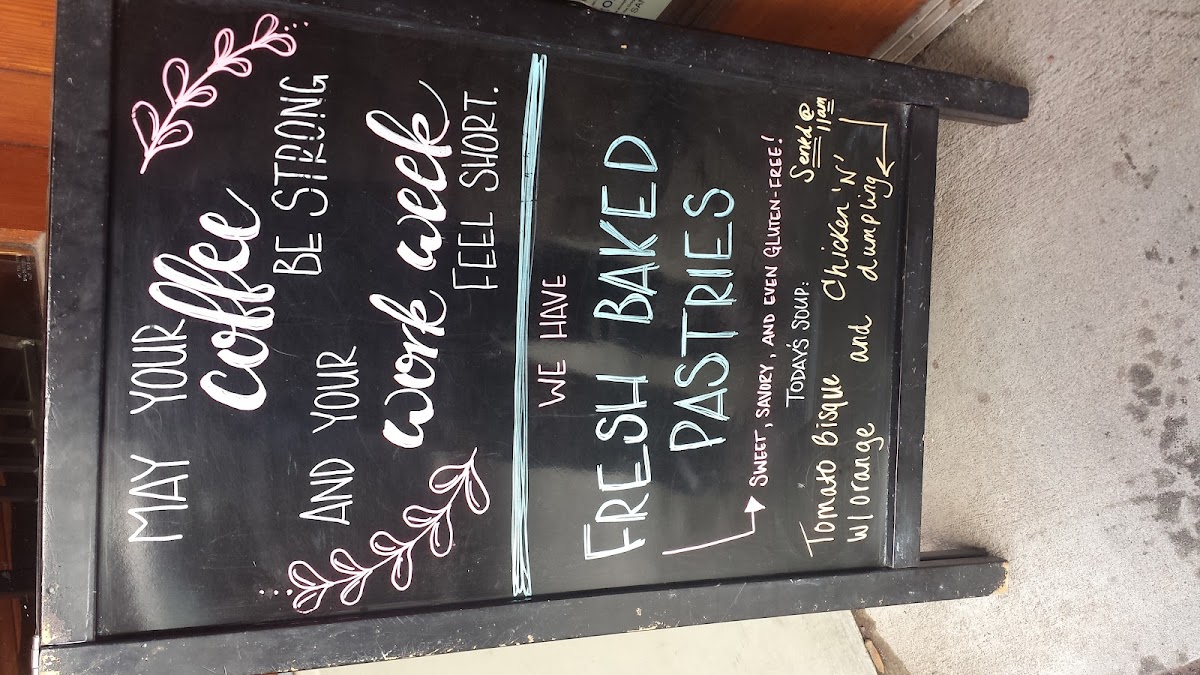 MAY YOUR
coffee
BE STRONG
AND YOUR
work week
FEEL SHORT.
WE HAVE
FRESH BAKED
PASTRIES
SWEET, SAVORY, AND EVEN GLUTEN-FREE!
TODAY'S SOUP:
Served @
11am
Tomato Bisque
w/ orange and
Chicken 'N'
dumpling